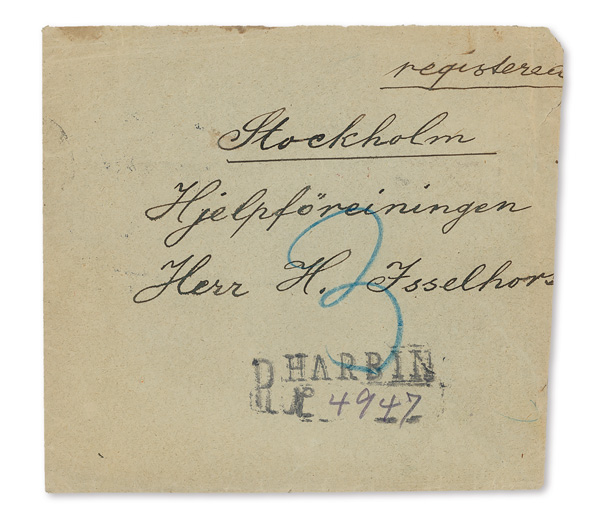 registered
Stockholm
Hjelpföreiningen
Herr H. Isselhors
3
R HARBIN
№ 4947